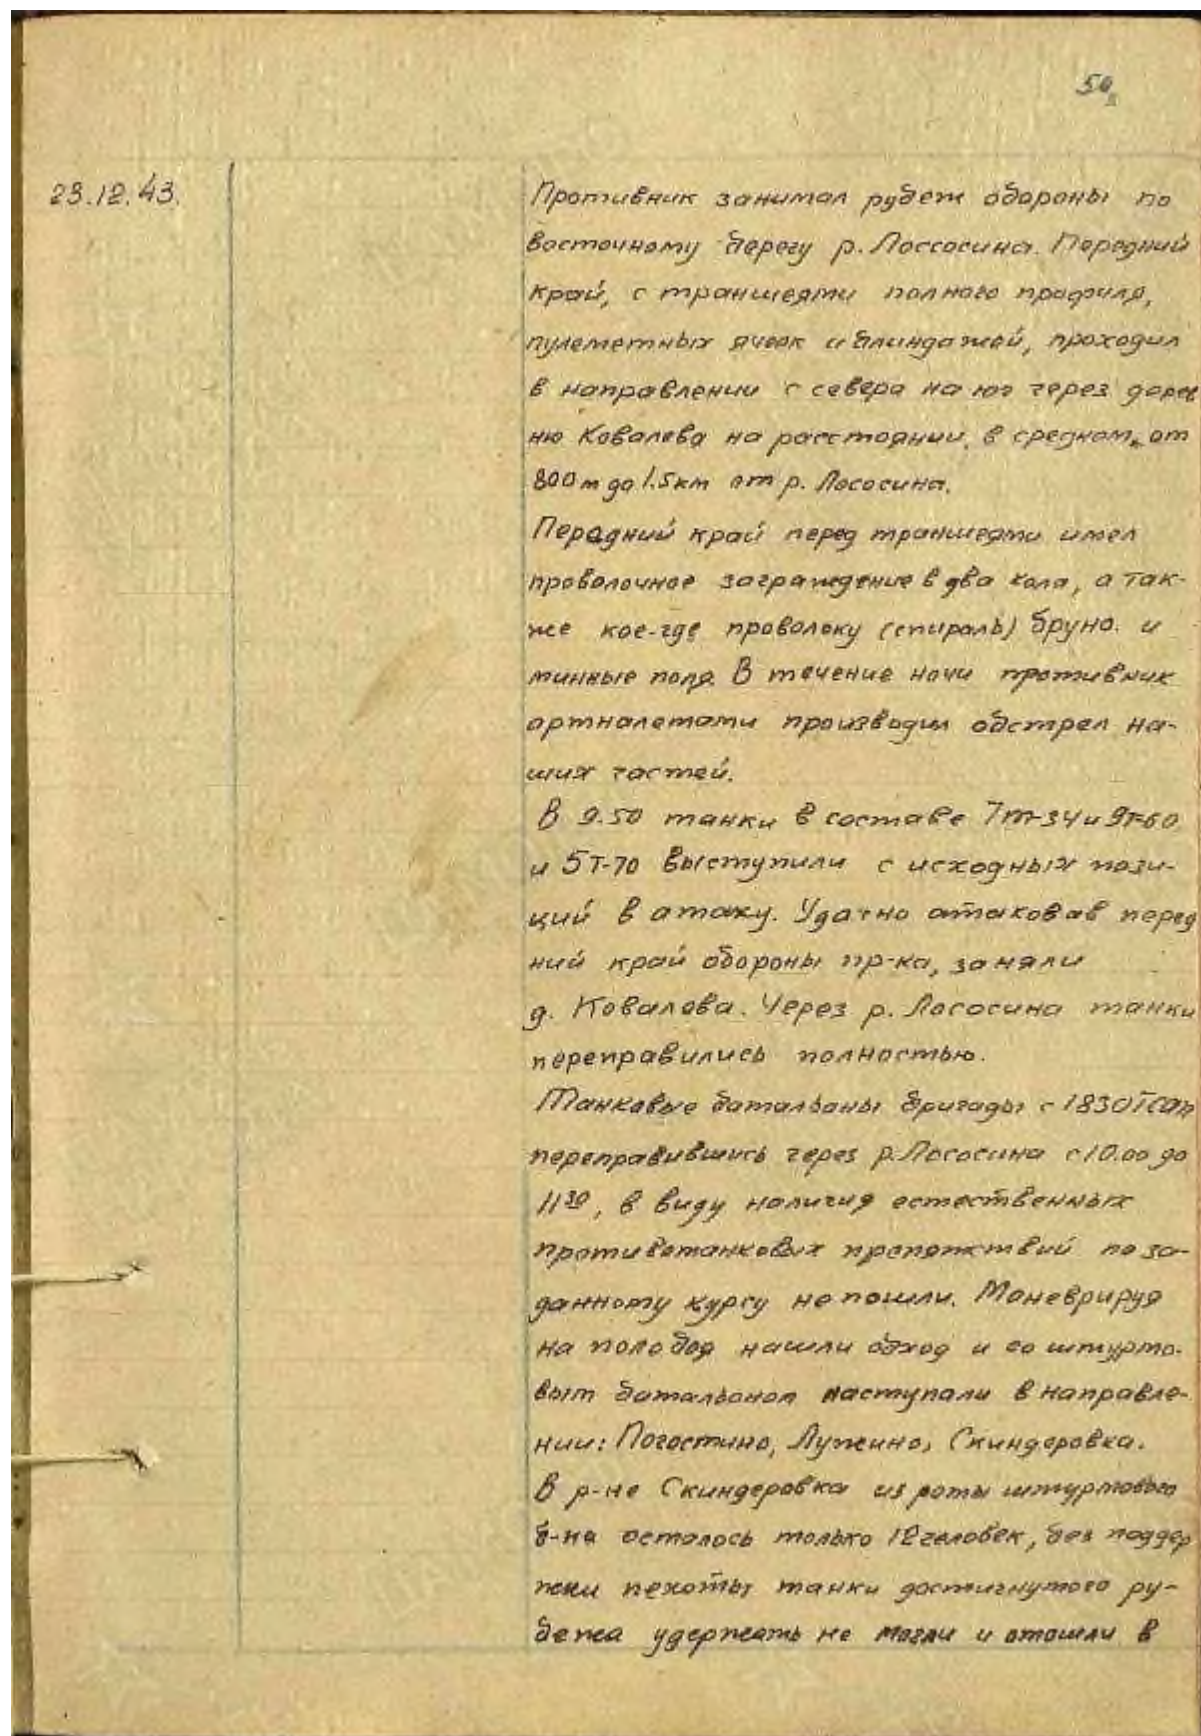 50
23.12.43.
Противник занимал рубеж обороны по
восточному берегу р. Лоссосина. Передний
край, с траншеями полного профиля,
пулеметных ячеек и блиндажей, проходил
в направлении с севера на юг через дерев
ню Ковалева на расстоянии, в среднем, от
800 м до 1.5 км от р. Лососина.
Передний край перед траншеями имел
проволочное заграждение в два кола, а так-
же кое-где проволоку (спираль) бруно. и
минные поля. В течение ночи противник
артналетами производил обстрел на-
ших частей.
В 9.50 танки в составе 7 т-34 и 9т-60
и 5 Т-70 выступили с исходных пози-
ций в атаку. Удачно атаковав перед
ний край обороны пр-ка, заняли
д. Ковалева. Через р. Лососина танки
переправились полностью.
Танковые батальоны бригады с 1830 тсап
переправившись через р. Лососина с 10.00 до
11 30, в виду наличия естественных
противотанковых препятствий по за-
данному курсу не пошли. Маневрируя
на поле боя нашли обход и со штурмо-
вым батальоном наступали в направле-
нии: Погостино, Лужино, Скиндеровка.
В р-не Скиндеровка из роты штурмового
б-на осталось только 12 человек, без поддер
жки пехоты танки достигнутого ру-
бежа удержать не могли и отошли в